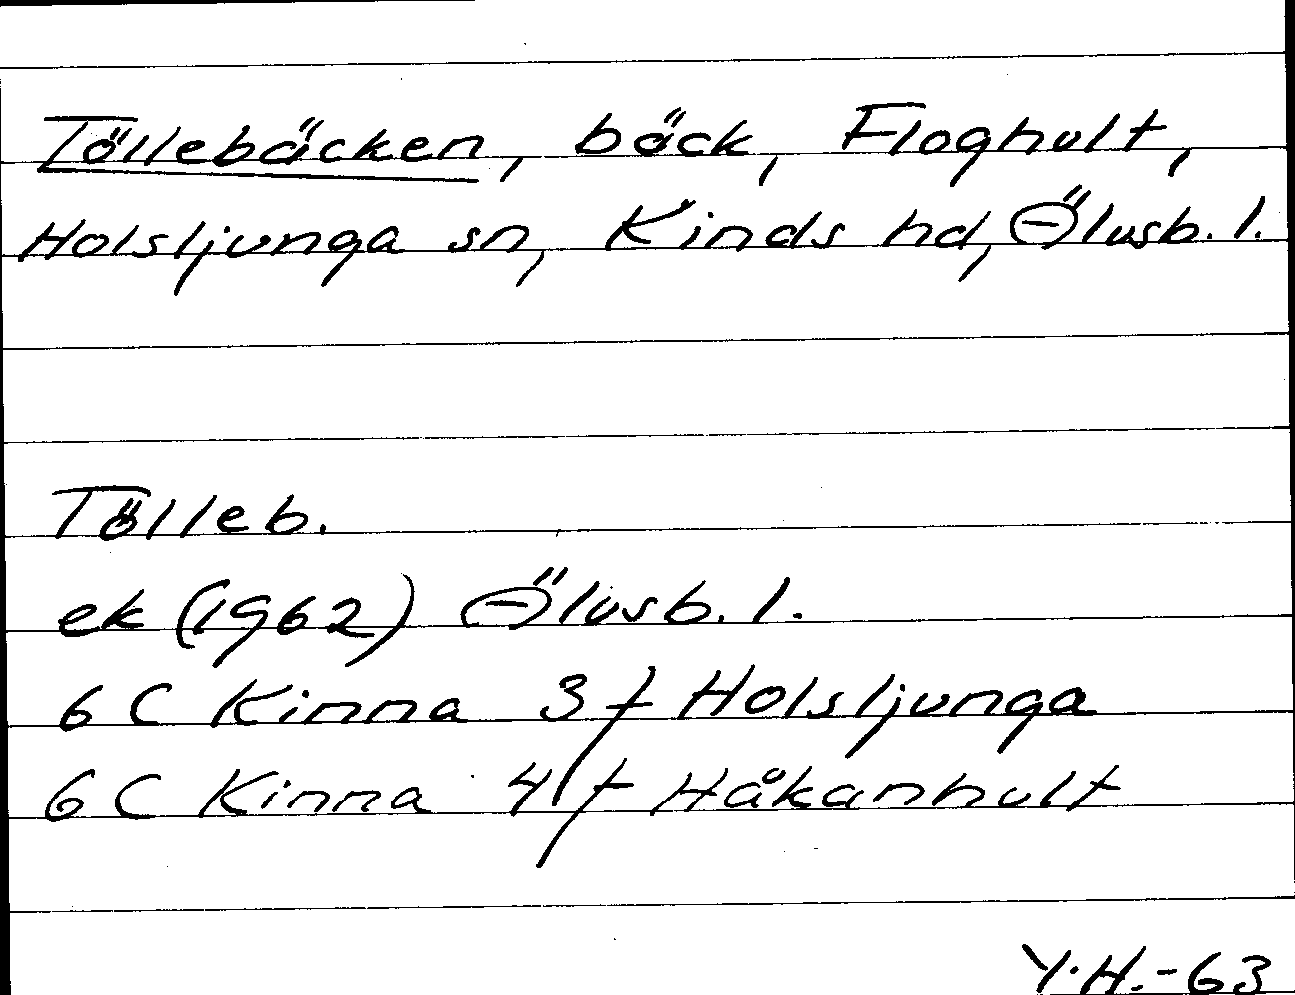 Töllebäcken, bäck, Floghult,
Holsljunga sn, Kinds hd, Älvsb. l.
Tölleb.
ek (1962) Älvsb. l.
6 C Kinna 3 f Holsljunga
6 C Kinna 4 f Håkanhult
Y.H.-63